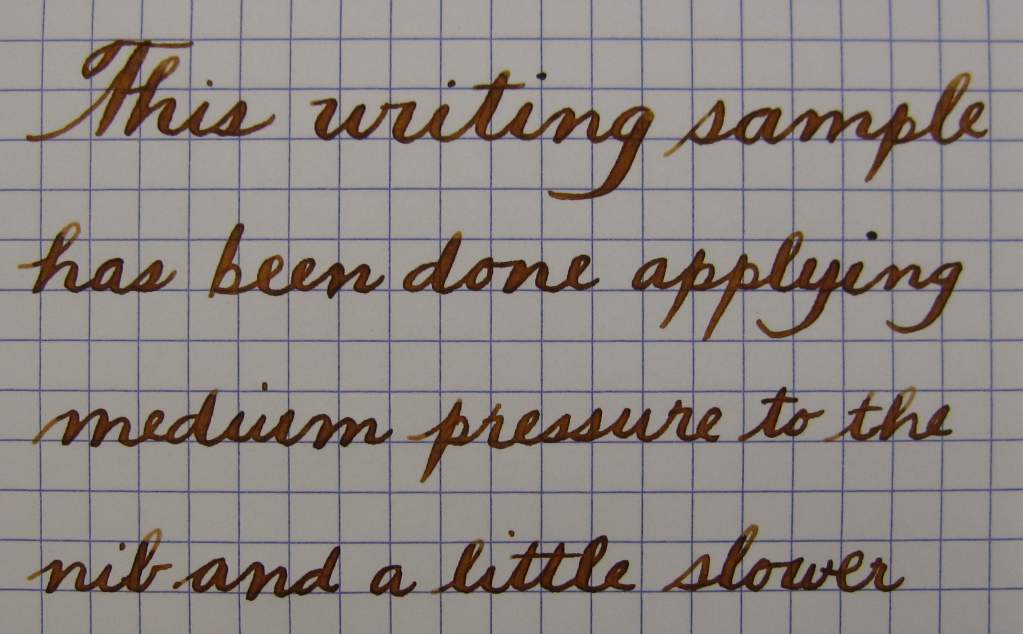 This writing sample
has been done applying
medium pressure to the
nib and a little slower